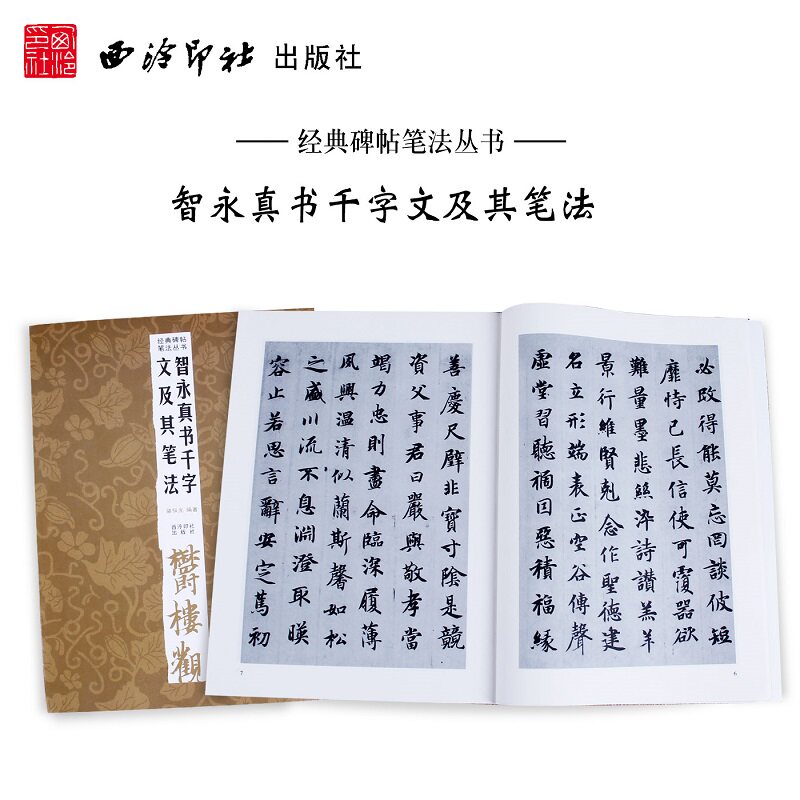 西泠印社
西泠印社 出版社
经典碑帖笔法丛书
智永真书千字文及其笔法
经典碑帖
笔法丛书
智永真书千字
文及其笔法
编著
西泠印社
出版社
鬱樓觀
必改得能莫忘罔談彼短
靡恃己長信使可覆器欲
難量墨悲絲淬詩讚羔羊
景行維賢剋念作聖德建
名立形端表正空谷傳聲
虛堂習聽禍因惡積福緣
6
善慶尺璧非寶寸陰是競
資父事君曰嚴與敬孝當
竭力忠則盡命臨深履薄
夙興温清似蘭斯馨如松
之盛川流不息淵澄取暎
容止若思言辭安定篤初
7